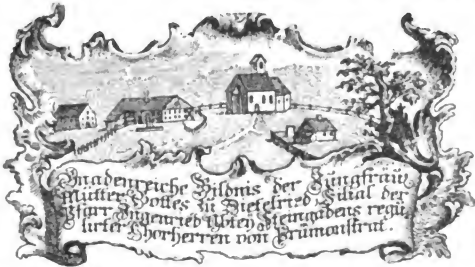 Gnadenreiche Bildnis der Jungfrau
Mutter Gottes zu Dietelried Filial der
Pfarr Ingenried Steingadens regu
lirter Chorherren von Prämonstrat.